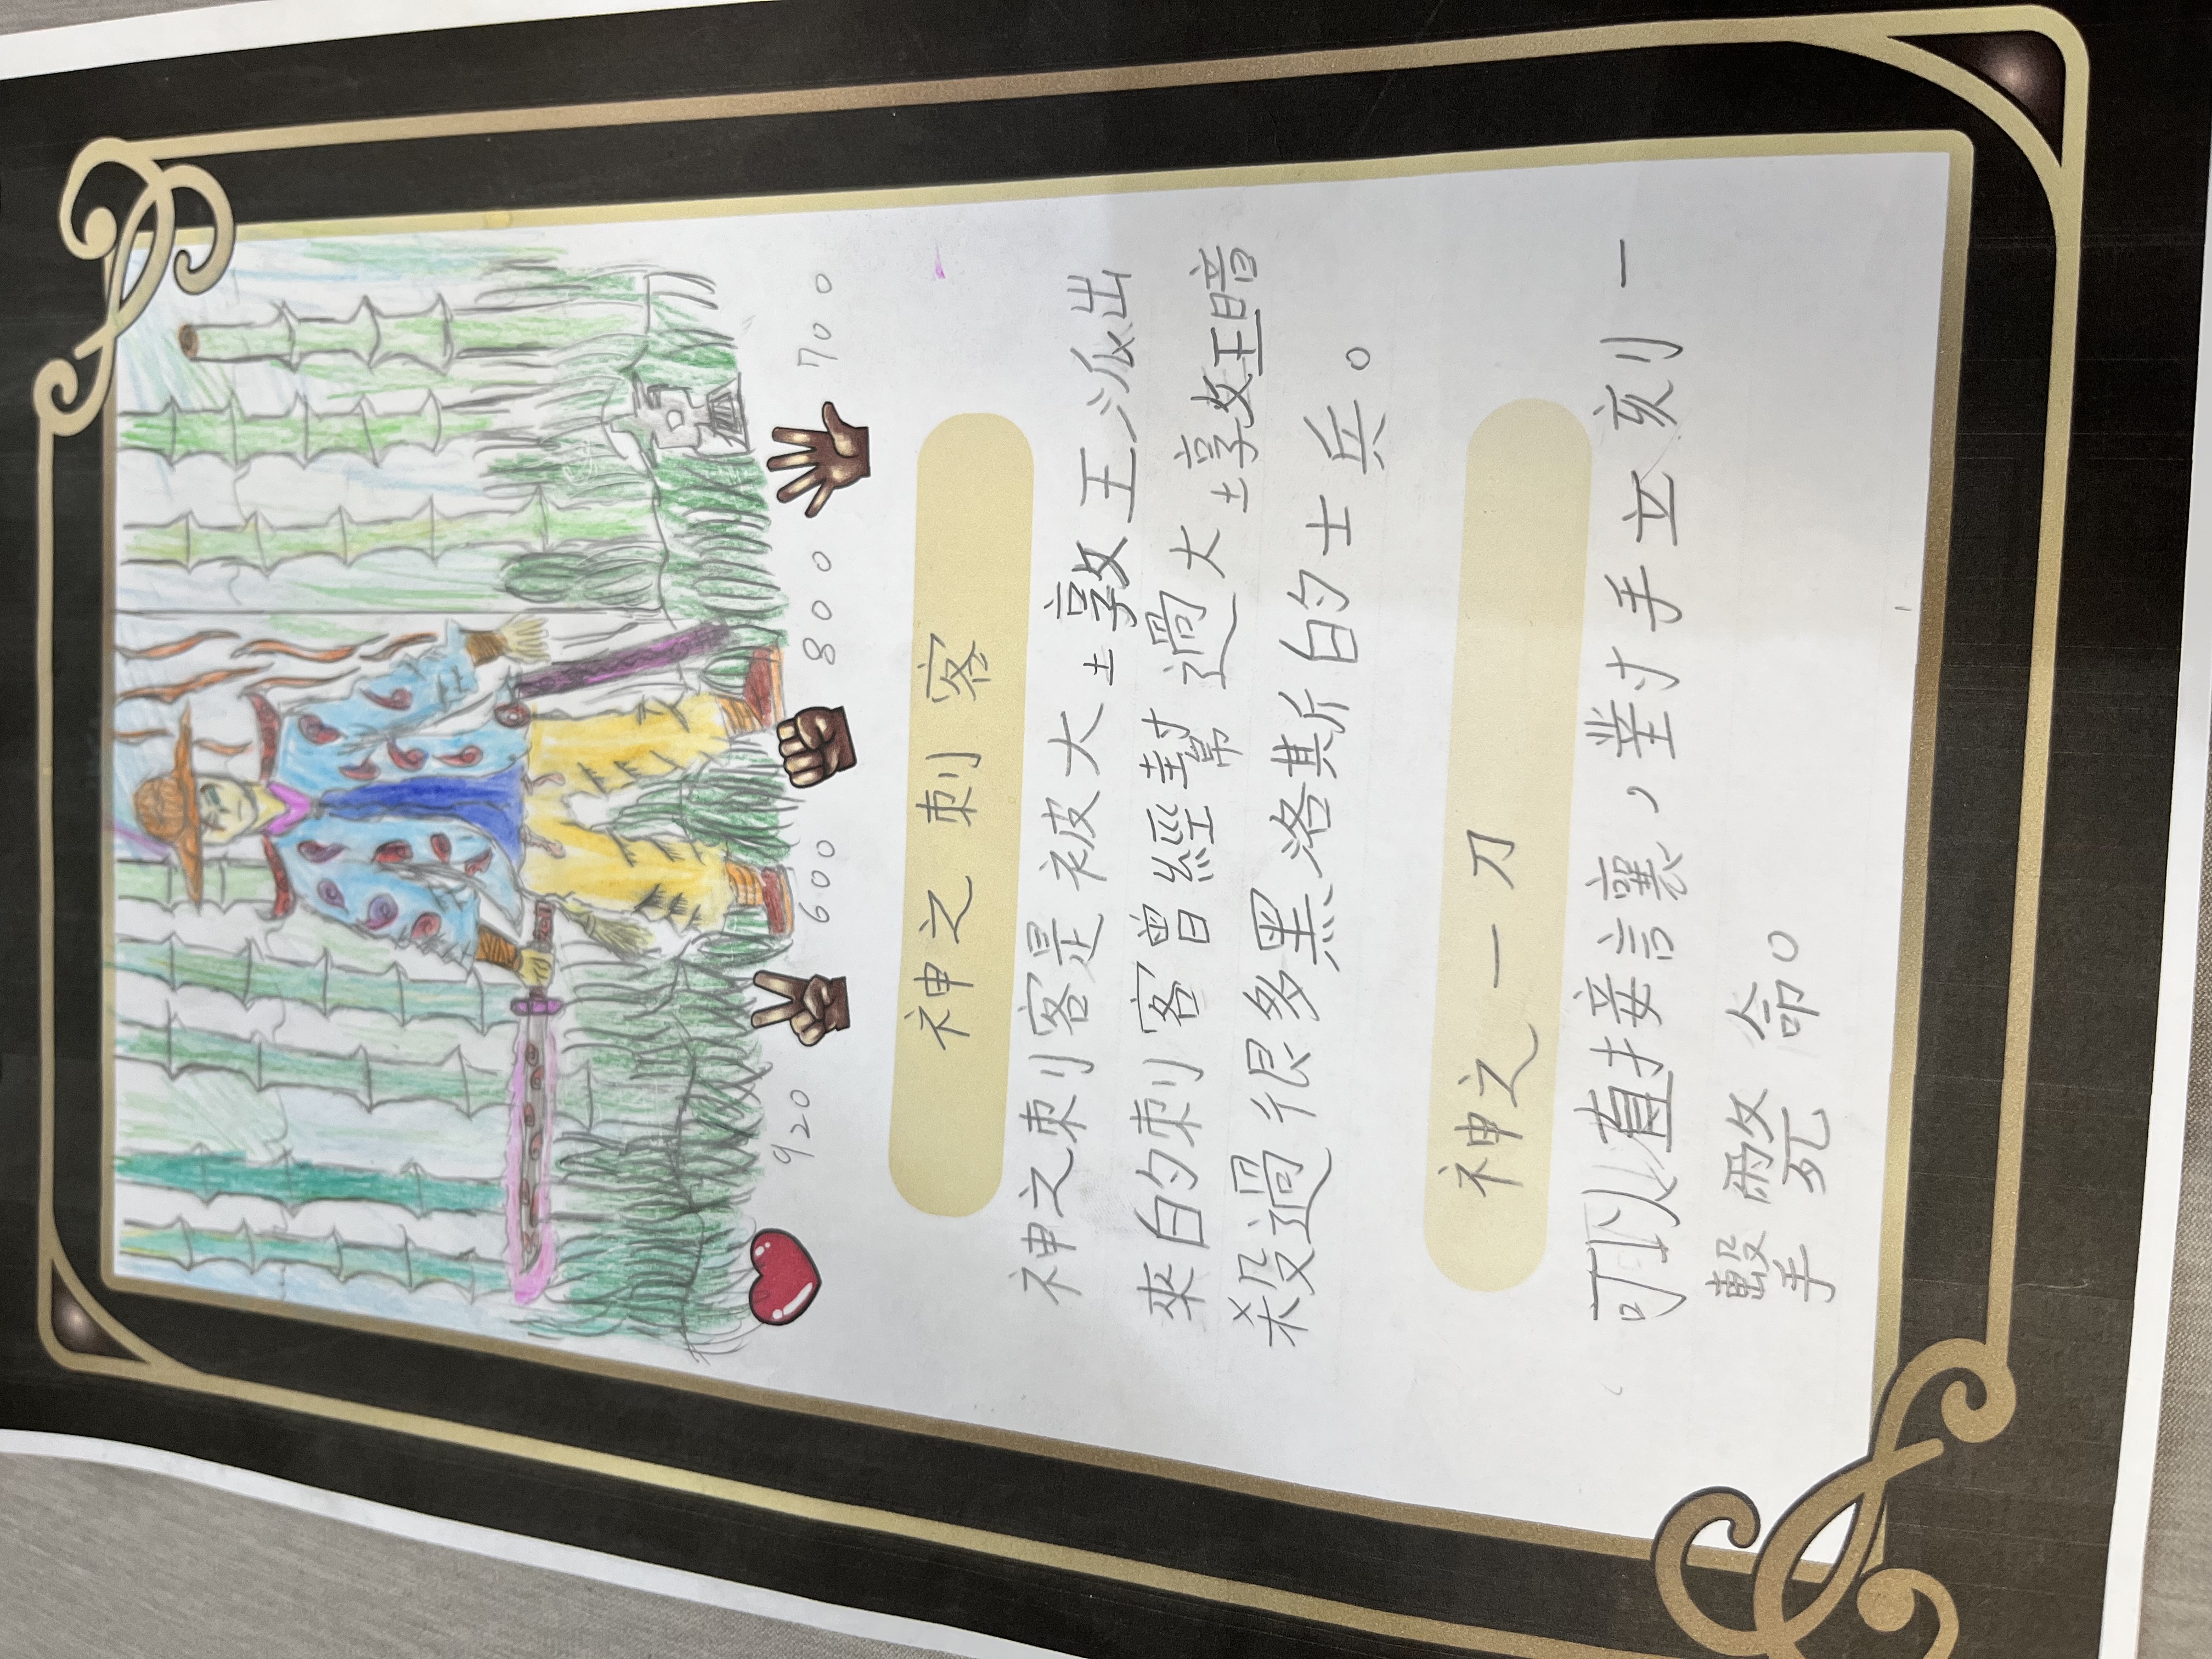 920 600 800 700
神之刺客
神之刺客是被大土敦王派出
來的刺客曾經幫過大土敦王暗
殺過很多黑洛斯的士兵。
神之一刀
可以直接讓，對手立刻一
擊斃命。